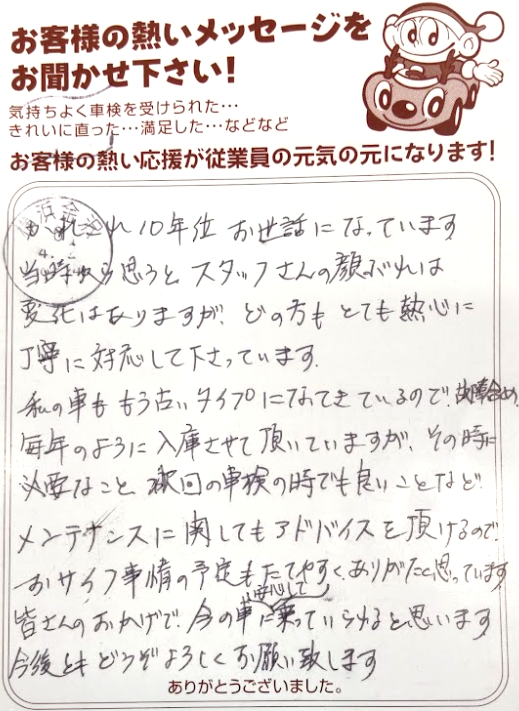 お客様の熱いメッセージを
お聞かせ下さい!
気持ちよく車検を受けられた…
きれいに直った…満足した…などなど
お客様の熱い応援が従業員の元気の元になります!
かれこれ10年位 お世話になっています
当時から思うと、スタッフさんの顔ぶれは
変化はありますが、どの方も とても熱心に
丁寧に対応して下さっています.
私の車も もう古いタイプになってきているので、故障含め、
毎年のように入庫させて頂いていますが、その時に
必要なこと 次回の車検の時でも良いことなど
メンテナンスに関してもアドバイスを頂けるので
おサイフ事情の予定もたてやすく、ありがたく思っています
皆さんのおかげで、今の車に安心して乗っていられると思います
今後とも どうぞよろしくお願い致します
ありがとうございました。